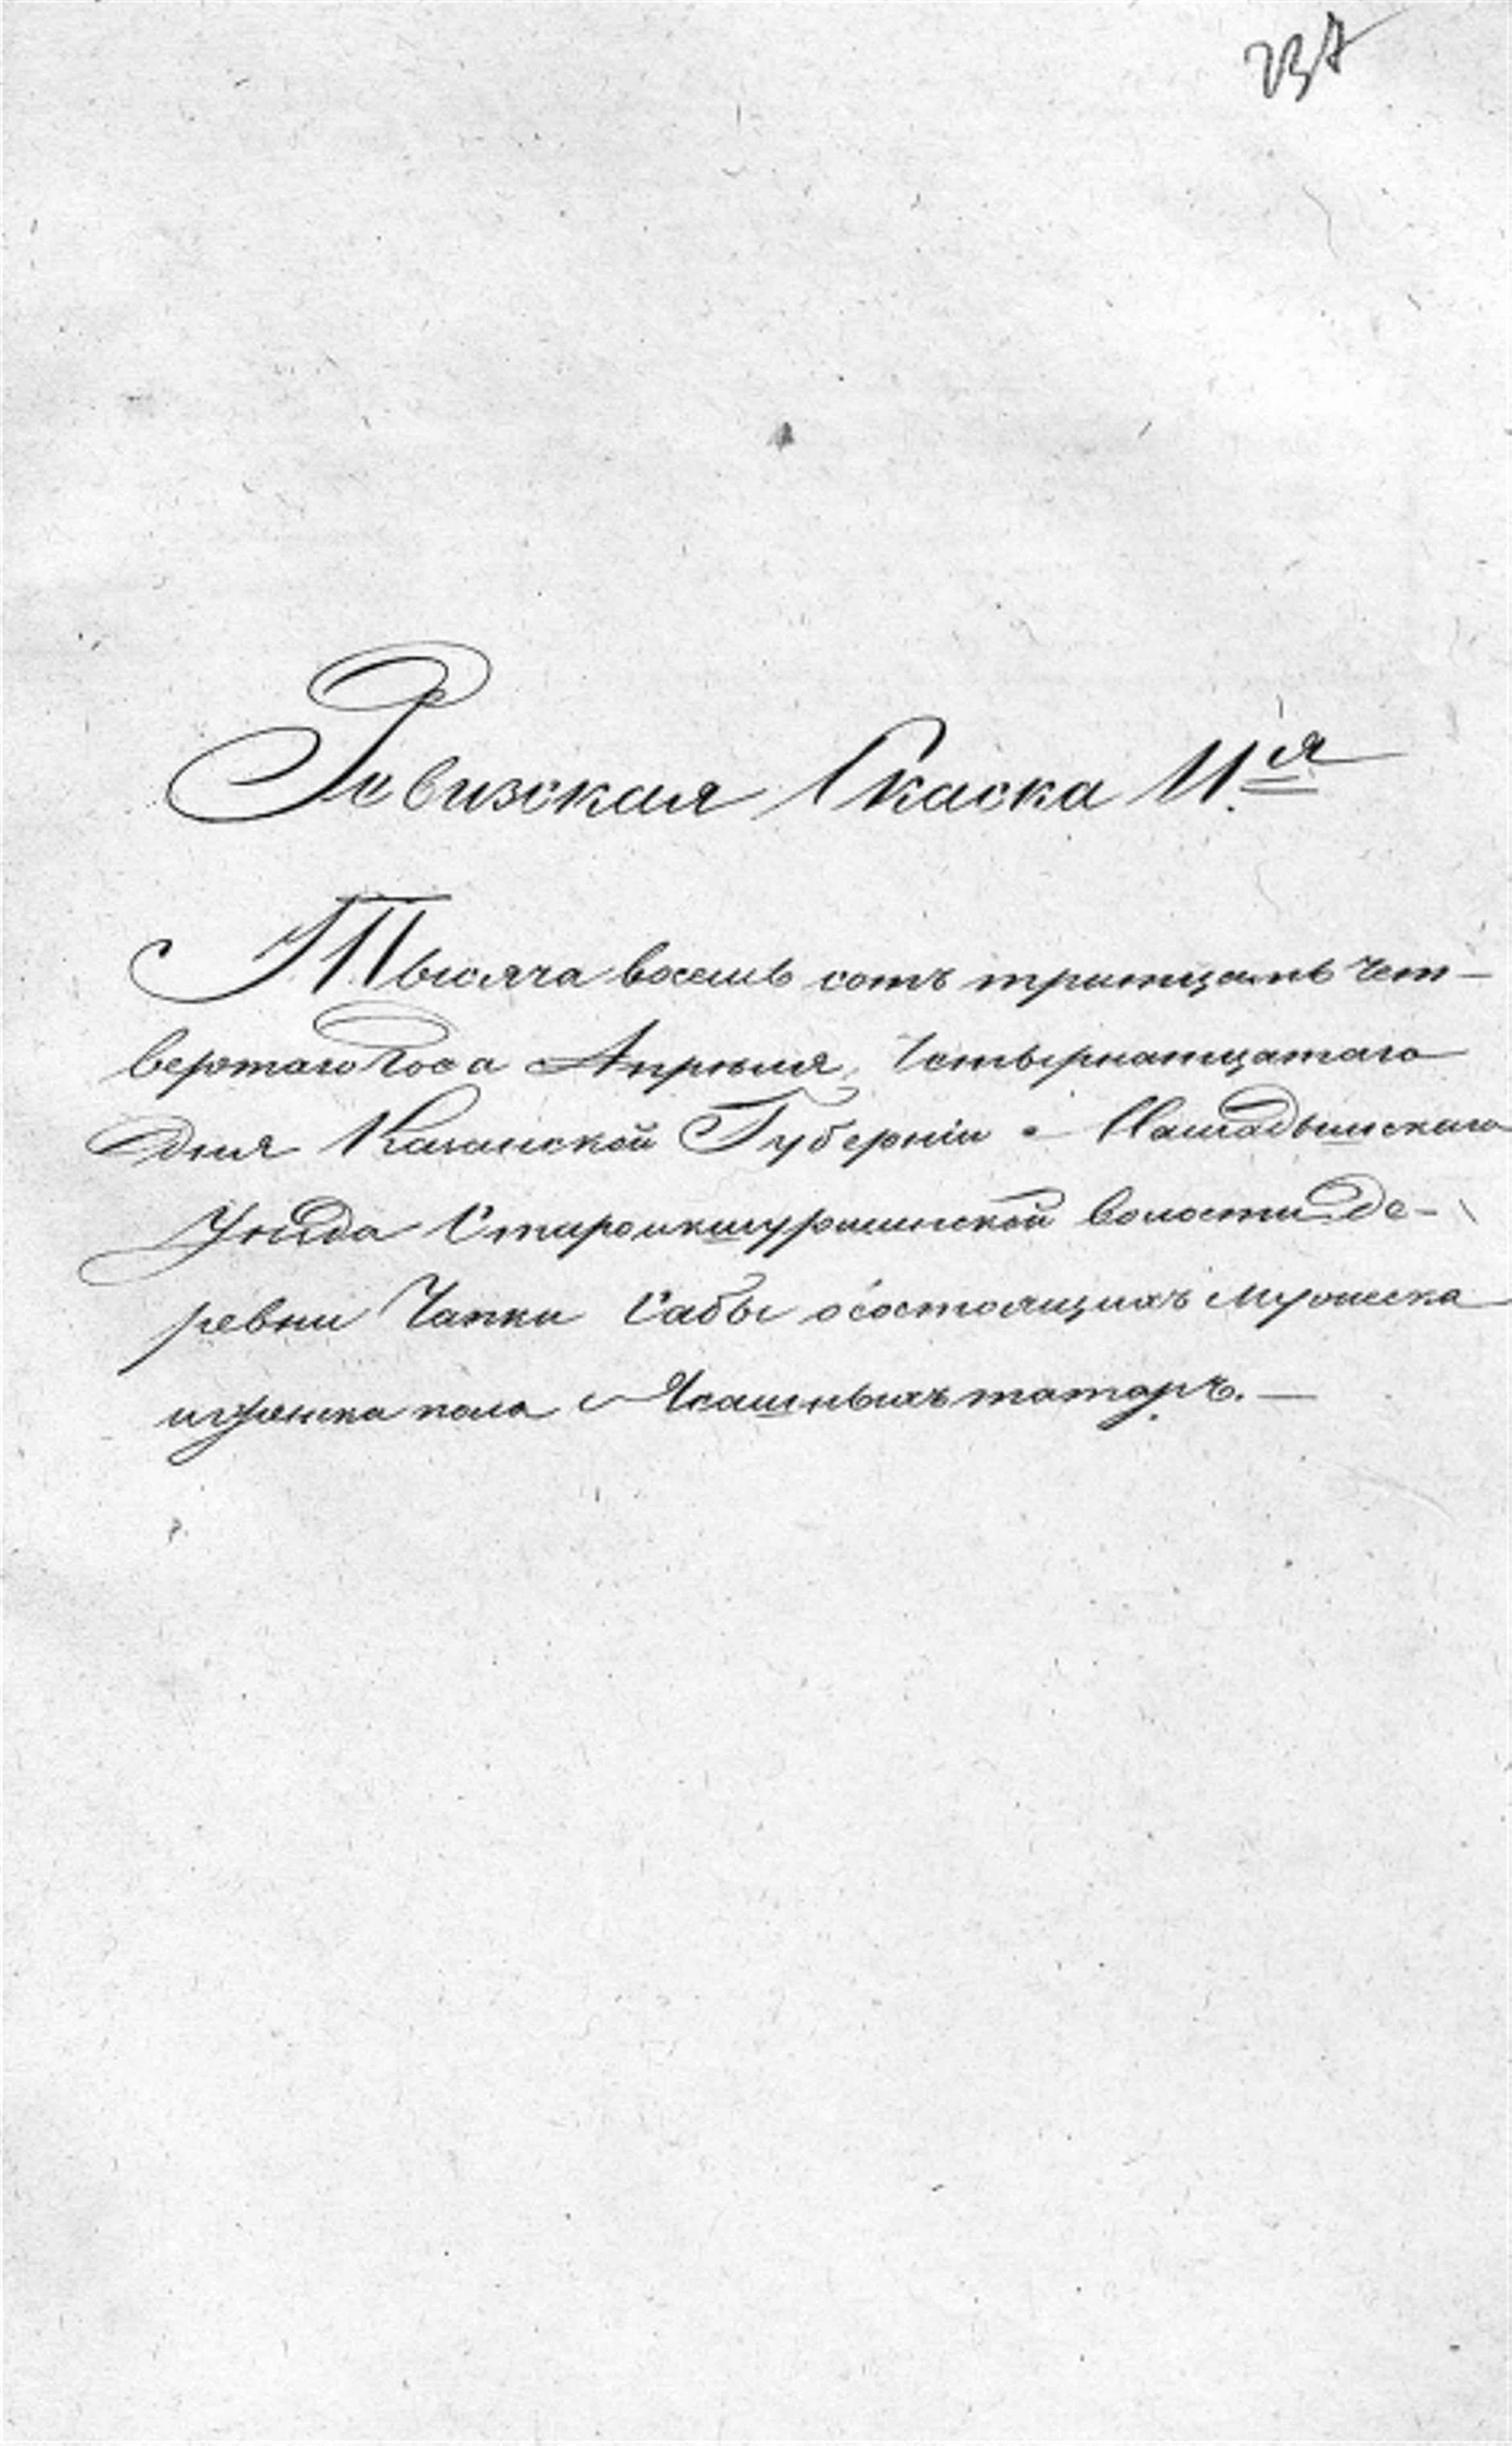 237
Ревизская Скаска 11.ая
Тысяча восемь сотъ тритцать чет-
вертаго года Апреля, Четырнатцатаго
дня Казанской Губерніи Мамадышскаго
Уезда Староикшурминской волости де-
ревни Чапки Сабы осостоящихъ мужеска
иженска пола Ясашныхъ татаръ.